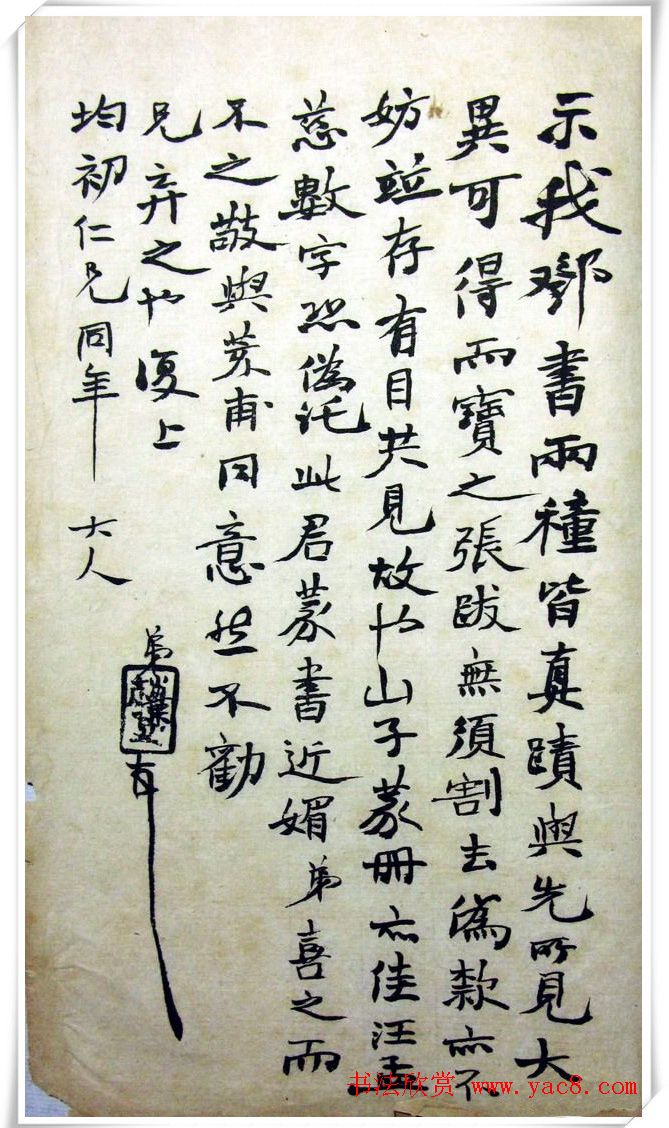 示我鄧書兩種皆真蹟與先所見大
異可得而寶之張跋無須割去偽款亦不
妨竝存有目共見故也山子篆冊亦佳汪孟
慈數字恐偽託此君篆書近媚弟喜之而
不之敬與荄甫同意然不勸
兄弃之也復上
均初仁兄同年大人
弟
书法欣赏 www.yac8.com